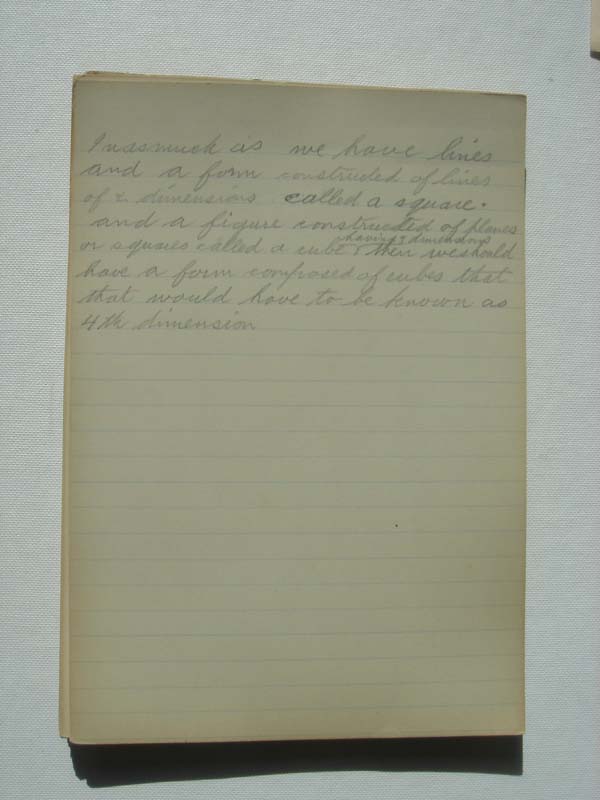 Inasmuch as we have lines
and a form constructed of lines
of 2 dimensions called a square.
and a figure constructed of planes
having 3 dimensions
or squares called a cube then we should
have a form composed of cubes that
that would have to be known as
4th dimension